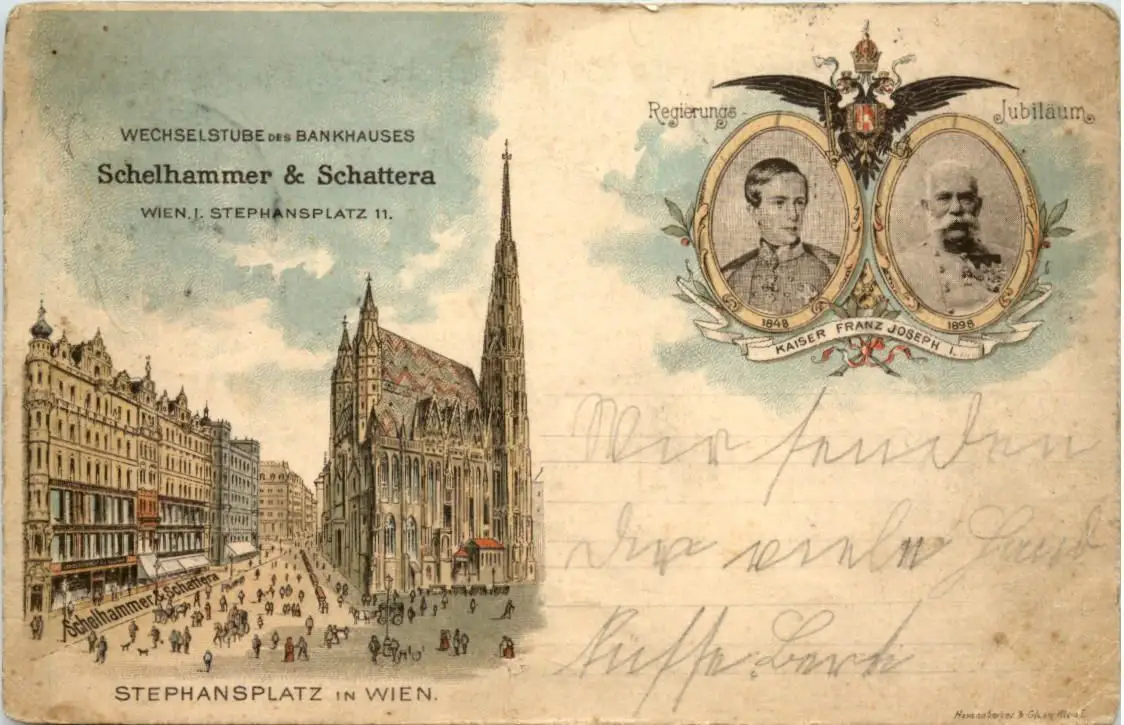 WECHSELSTUBE DES BANKHAUSES
Schelhammer & Schattera
WIEN. I. STEPHANSPLATZ 11.
Regierungs-
Jubiläum
1848
1898
KAISER FRANZ JOSEPH I.
Schelhammer & Schattera
STEPHANSPLATZ IN WIEN.
Wir senden
dir viele
Küsse